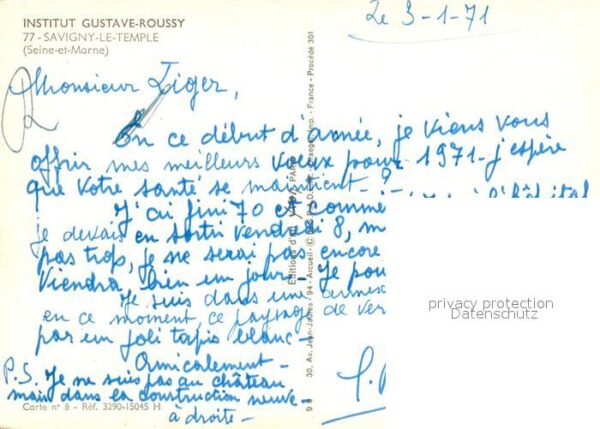 INSTITUT GUSTAVE-ROUSSY
77 - SAVIGNY-LE-TEMPLE
(Seine-et-Marne)
Le 3-1-71
Monsieur Liger,
En ce début d'année, je viens vous
offrir mes meilleurs voeux pour 1971 - j'espère
que votre santé se maintient - ? -
J'ai fini 70 et comme
je devais en sortir vendredi 8, m
pas trop, je ne serai pas encore
Viendra bien un jour - Je pou
Je suis dans une annexe
en ce moment, ce paysage de ver
par un joli tapis blanc -
Amicalement -
P.S. Je ne suis pas au château
mais dans la construction neuve -
à droite -
Carte n° 8 - Réf. 3290-15045 H
30, Av. Jean-Jaurès - 94 - Arcueil
Imp. - France - Procédé 301
privacy protection
Datenschutz